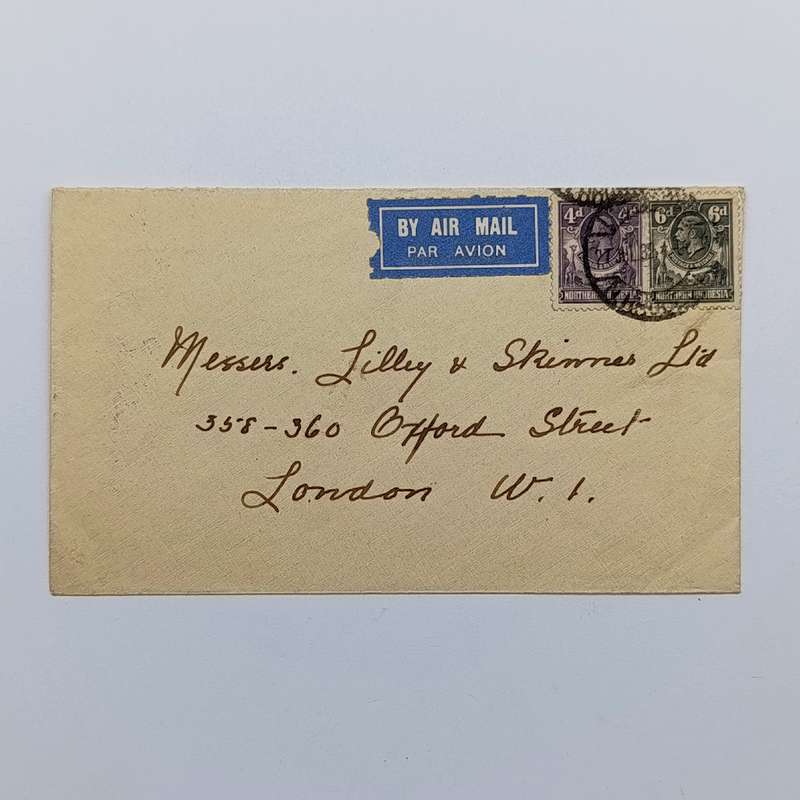 BY AIR MAIL
PAR AVION
4d
6d 6d
NORTHERN RHODESIA
Messers. Lilley & Skinner Ltd
358-360 Oxford Street
London W. 1.